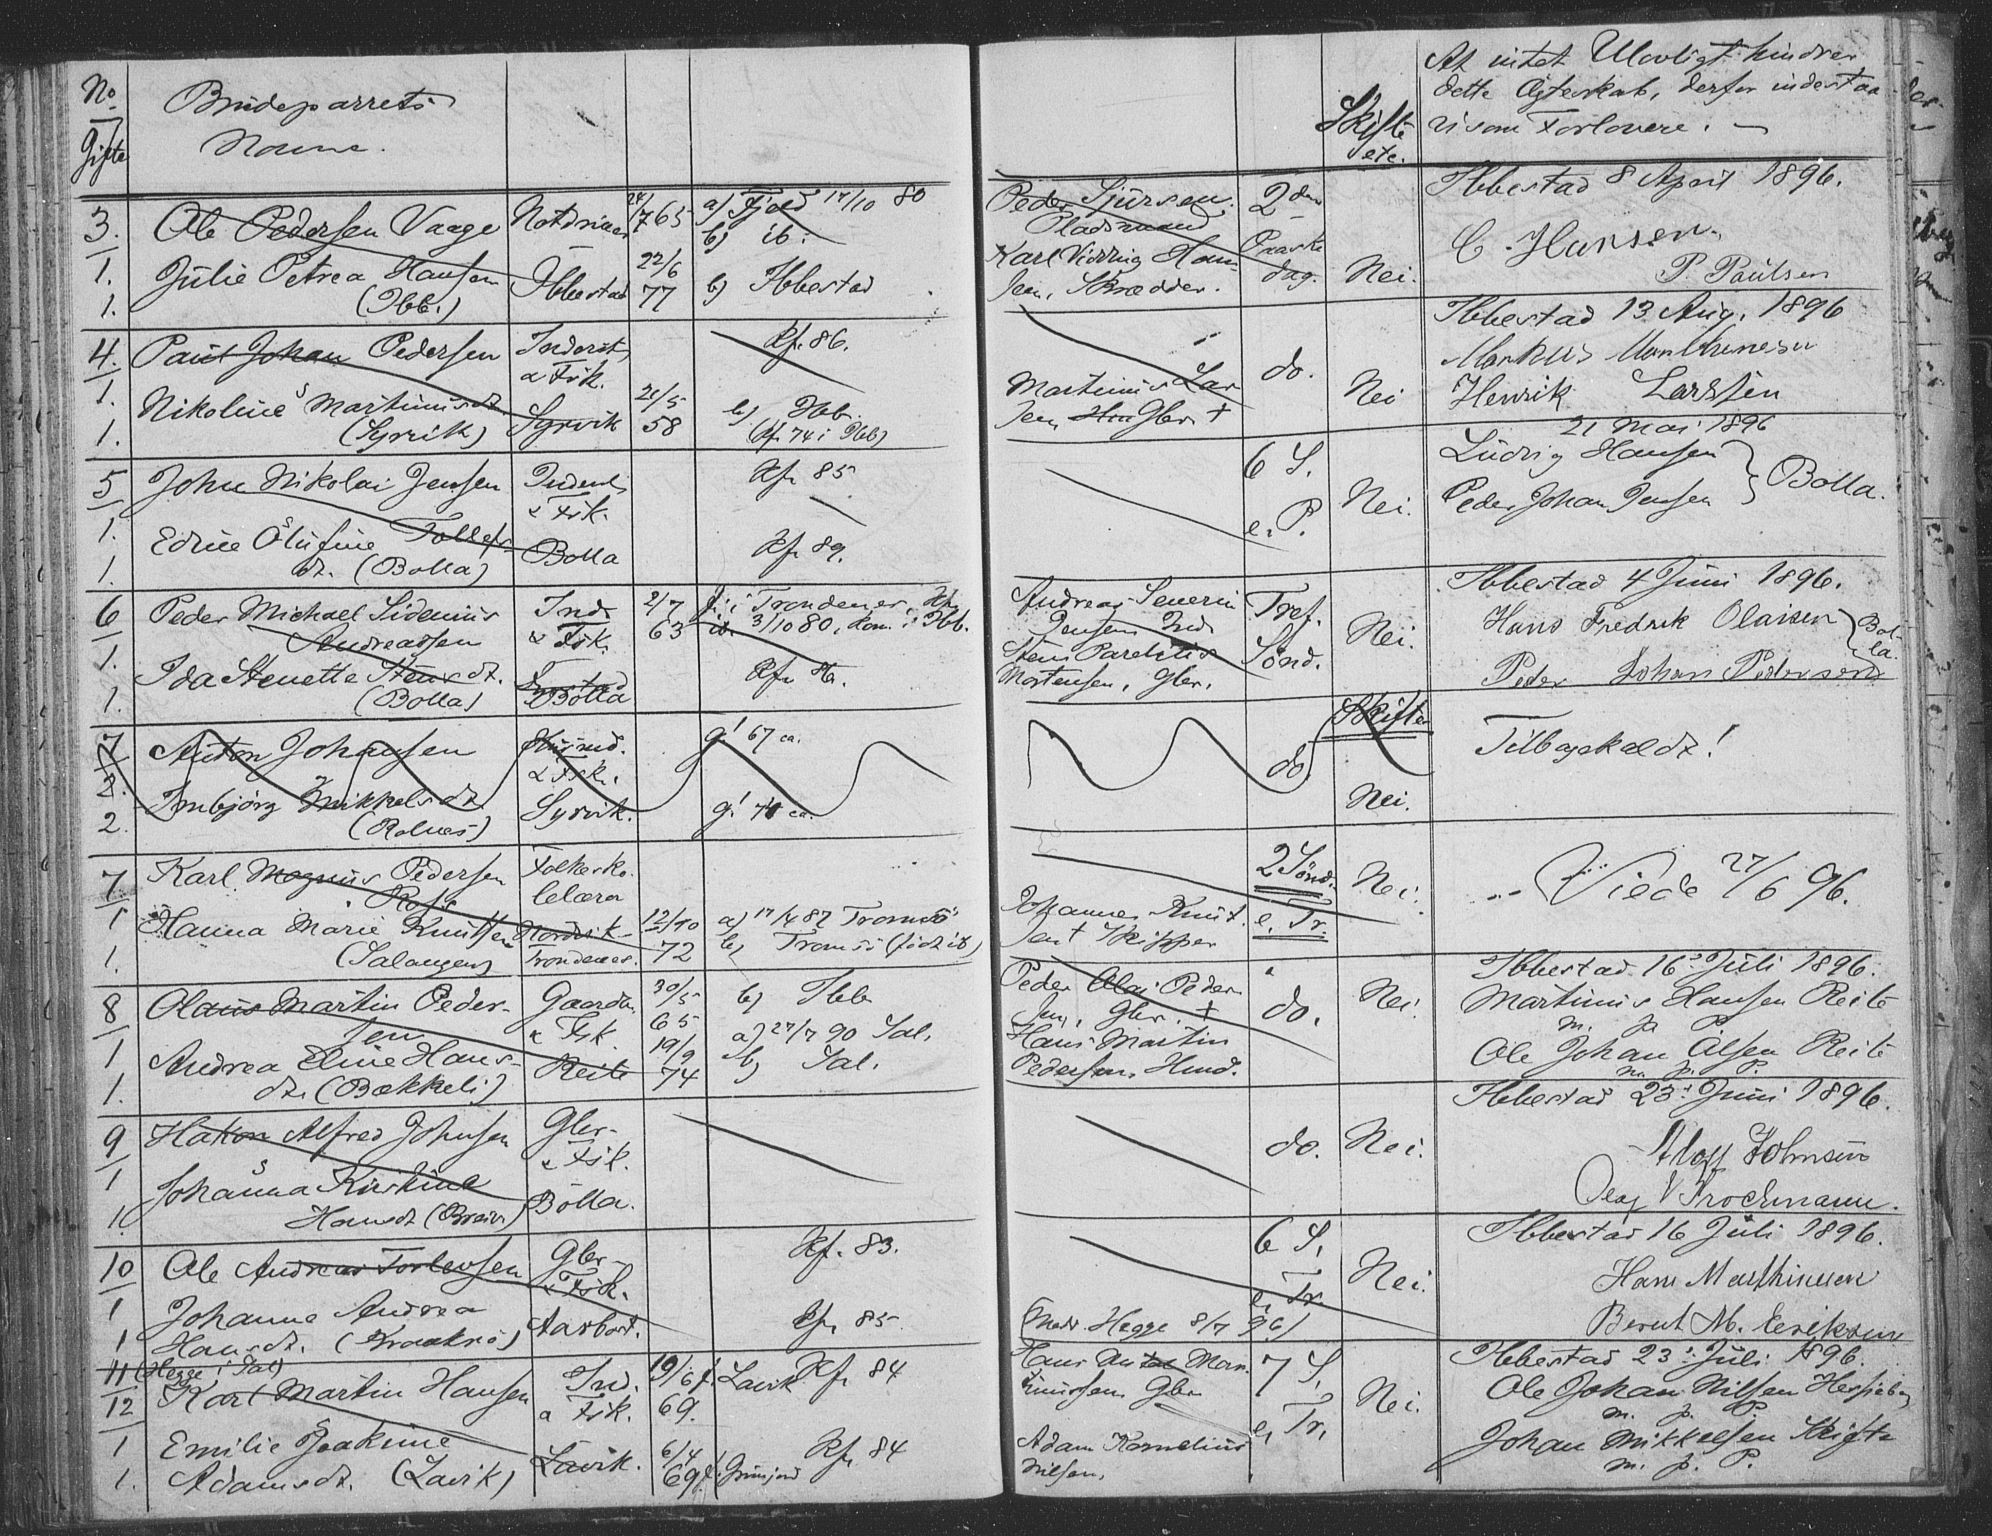 No
Gifte
Brudeparrets
Navne.
3.
1.
1.
Ole Pedersen Vaage
Julie Petrea Hansen
(Ibb.)
Ibbestad
24/7 65
22/6
77
a) Fjeld 17/10 80
b) ib.
b) Ibbestad
4.
1.
1.
Paul Johan Pedersen
Nikoline Martinusdt.
(Syrvik)
Inderst,
& Fisk.
Syrvik
21/5
58
Kf. 86.
b) Ibb.
(Kf. 74 i Ibb)
5
1.
1.
John Nikolai Jensen
Edine Olufine Tollefs-
dt. (Bolla)
Inderst,
& Fsk.
Bolla
Kf. 85
Kf. 89.
6
1.
1.
Peder Michael Sidenius
Andreassen
Ida Stenette Stensdt.
(Bolla)
Ind.
& Fsk.
Bolla
2/7
63
f. i Trondenes, Kf.
ib. 3/10 80, kom. i Ibb.
Kf. 86.
7
2.
2.
Anton Johansen
Inbjörg Mikkelsdt.
(Rolnes)
& Fsk.
Syrvik.
g! 67 ca.
g! 71 ca.
7
1
1.
Karl Magnus Pedersen
Hanna Marie Knutsen
(Salangen)
Folkesko-
lelærer
Nordvik
Trondenes.
12/10
72
a) 17/4 87 Tromsö
b) Tromsö (födt ib)
8
1
1.
Olaus Martin Peder-
sen
Andrea Eline Hans-
dt. (Bækkeli)
Gaardbr.
& Fsk.
Reite
30/5
65
19/9
74
b) Ibb
a) 27/7 90 Sal.
b) Sal.
9
1
1.
Hakon Alfred Johnsen
Johanna Kirstine
Hansdt. (Breiv.)
Gbr.
& Fsk.
Bolla.
10
1
1
Ole Andreas Torlevsen
Johanne Andrea
Hansdt. (Kraakrö)
Gbr.
& Fsk.
Aarbort.
Kf. 83.
Kf. 85.
11 (Hegge i Sal)
12
1
1.
Karl Martin Hansen
Emilie Joakime
Adamsdt. (Lavik)
Ind.
& Fsk.
Lavik.
19/6
69.
6/4
69
f. Lavik Kf. 84
f. Grinjord Kf. 84
Skifte
etc.
At intet Ulovligt hindrer
dette Ægteskab, derfor indestaa
vi som Forlovere. —
Peder Sjursen
Pladsmand
Karl Vidring Han-
sen, Skrædder.
2den
Paaske
dag.
Nei.
Ibbestad 8 April 1896.
C. Hansen.
P. Paulsen
Martinus Lar
sen, Gbr. +
do.
Nei
Ibbestad 13 Aug. 1896
Markus Marthinesen
Henrik Larssen
6 S.
e. P.
Nei.
21 Mai 1896
Ludvig Hansen
Peder Johan Jensen
Bolla.
Andreas Severin
Jensen Ind.
Sten Parelius
Mortensen, Gbr.
Tref.
Sönd.
Nei.
Ibbestad 4 Juni 1896.
Hans Fredrik Olaisen
Peder Johan Pedersen
Bol-
la.
do
Skifte
Nei.
Tilbagekaldt!
Johannes Knut
sen + Skipper
2 Sönd.
e. Tr.
Nei.
Viede 27/6 96.
Peder Olai Peder
sen, Gbr. +
Hans Martin
Pedersen, Hmd.
do.
Nei.
Ibbestad 16 Juli 1896.
Martinus Hansen Reite
m. p. P.
Ole Johan Olsen Reite
m. p. P.
do.
Nei.
Ibbestad 23 Juni 1896.
Johnsen
Olaf Brochmann.
6 S.
e. Tr.
Nei.
Ibbestad 16 Juli 1896.
Hans Marthinsen
Bernt M. Eriksen
Hegge 8/7 96)
Hans Anton Mor-
Gbr
Adam Kornelius
Nilsen.
7 S.
e. Tr.
Nei.
Ibbestad 23 Juli 1896.
Ole Johan Nilsen
m. p. P.
Johan Mikkelsen
m. p. P.